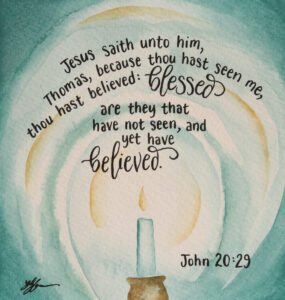 Jesus saith unto him,
Thomas, because thou hast seen me,
thou hast believed: blessed
are they that
have not seen, and
yet have
believed.
John 20:29